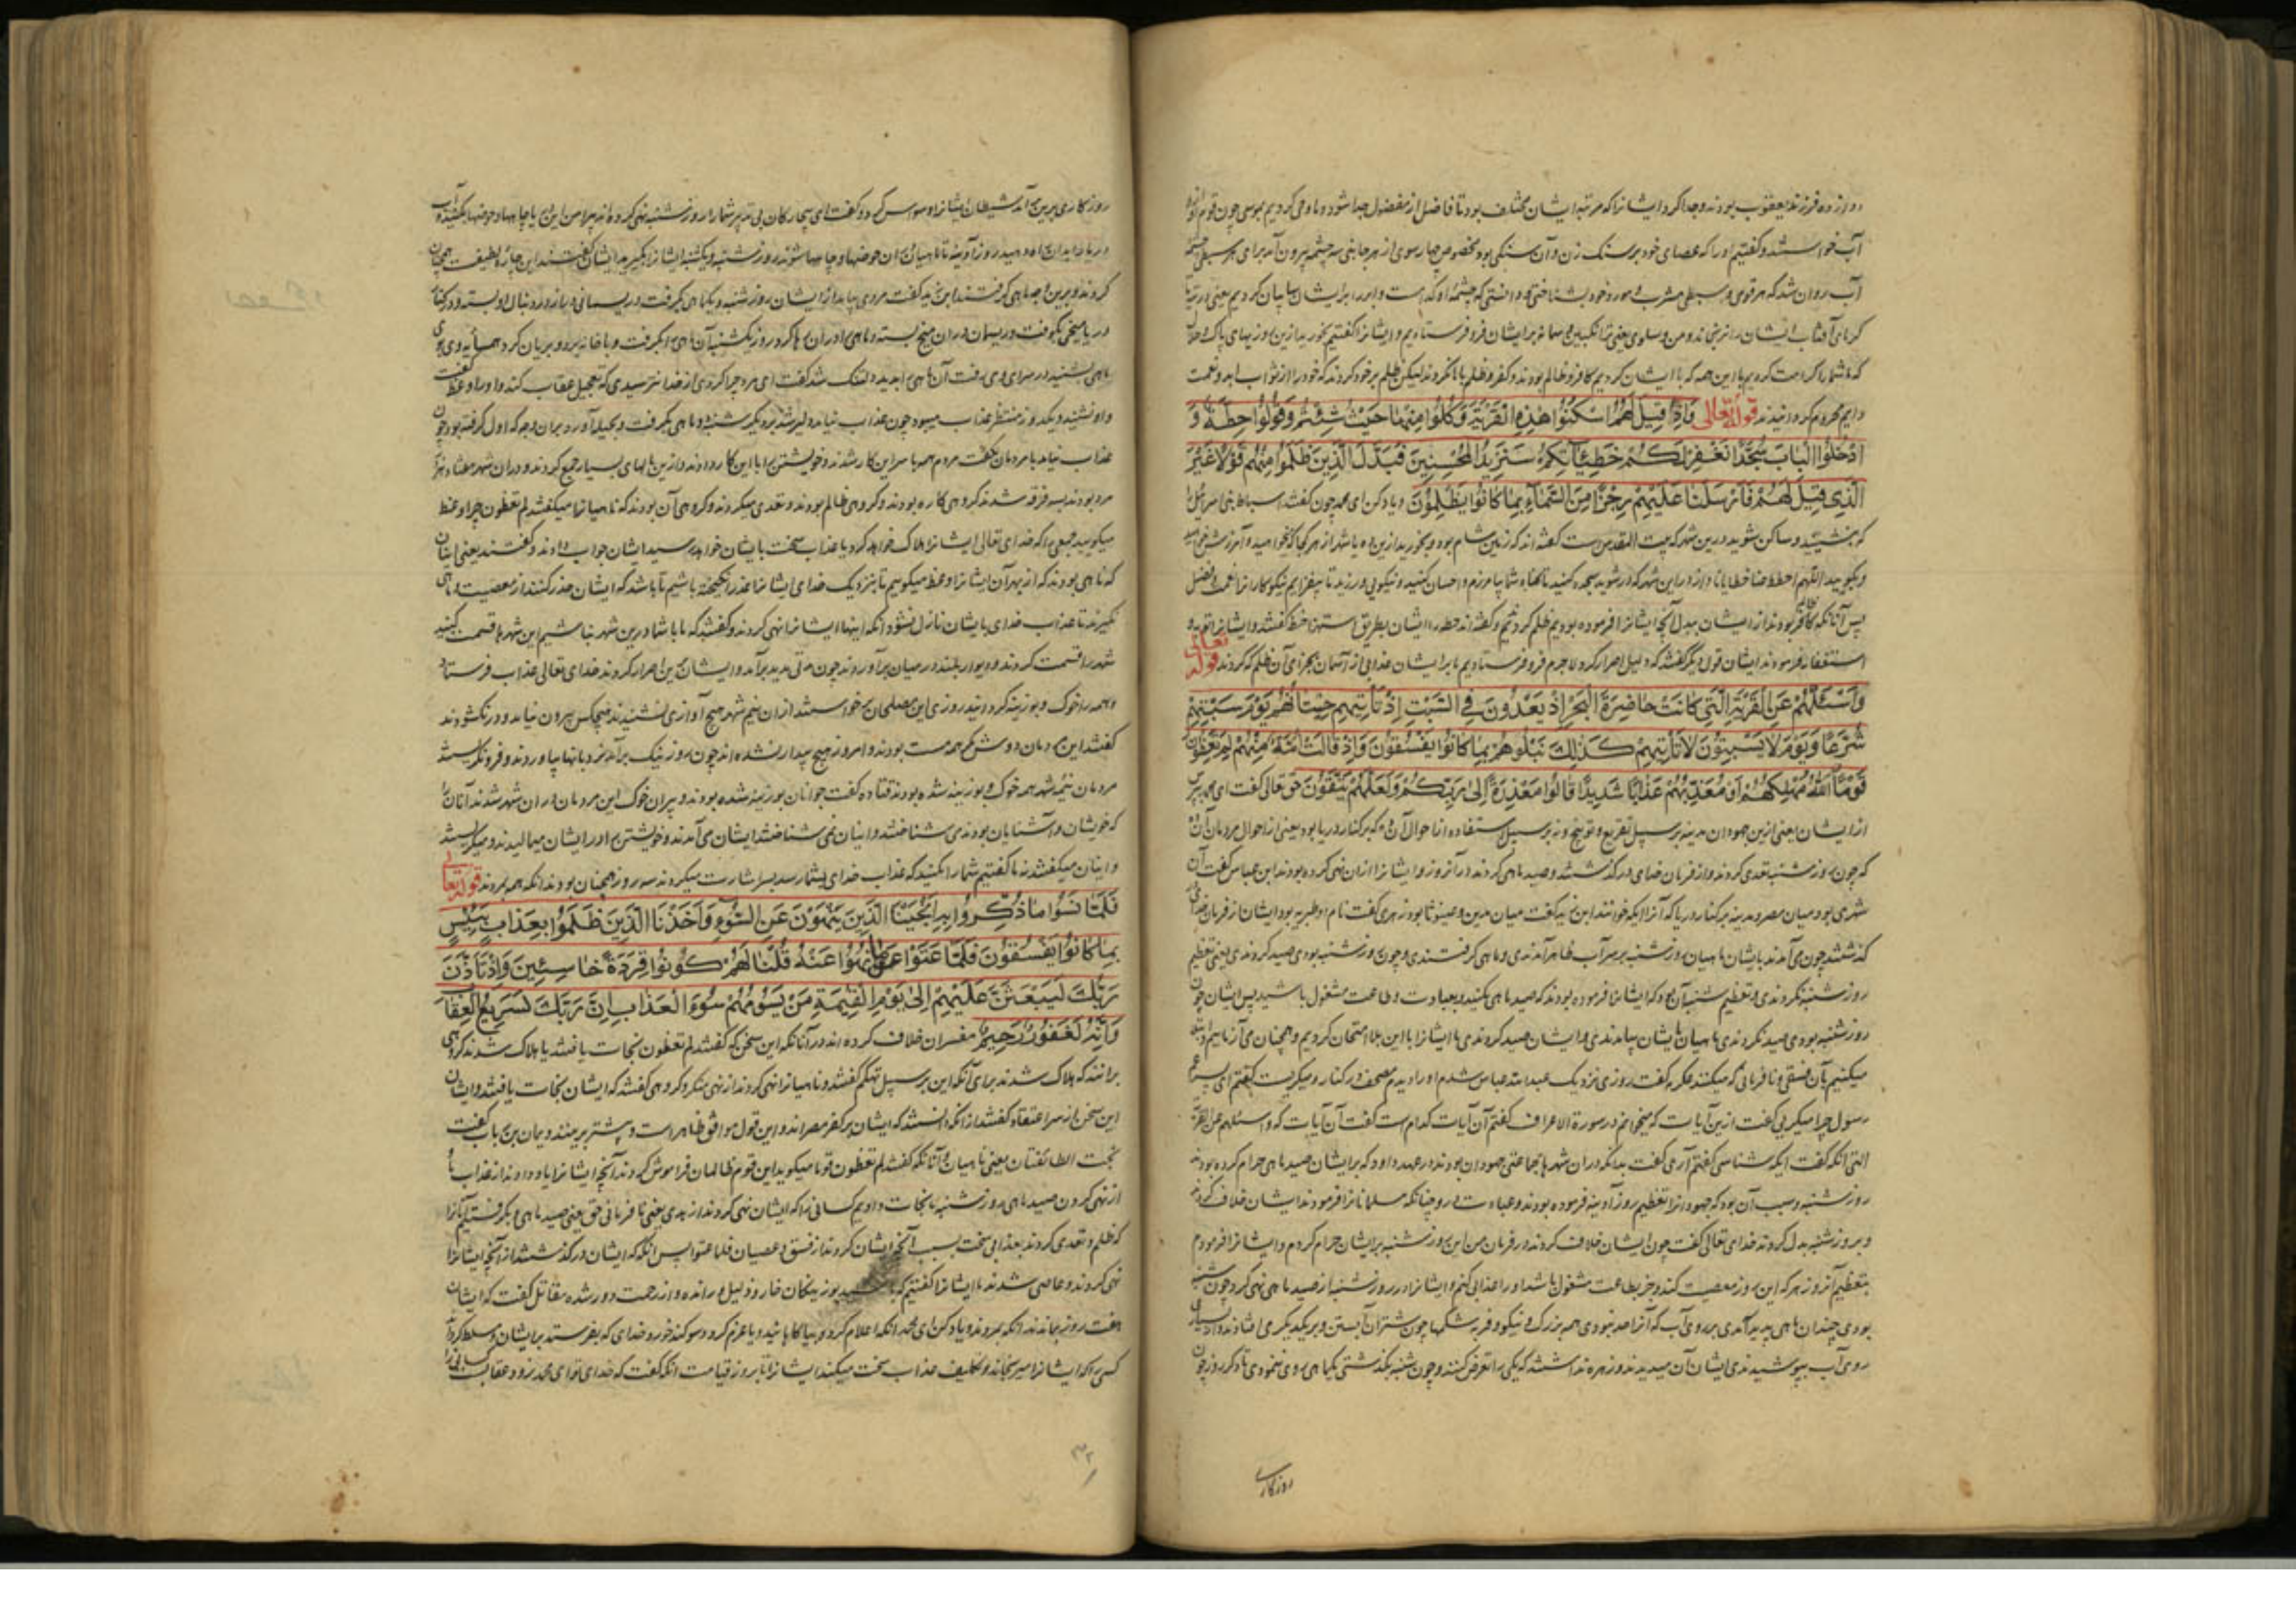 دوازده فرزند یعقوب بودند و جدا کرد ایشانرا که مرتبه ایشان مختلف بود تا فاضل از مفضول جدا شود و ما وحی کردیم بموسی چون قوم او
آب خواستند و گفتیم او را که عصای خود بر سنک زن و آن سنکی بود مخصوص چهار سوی از هر جانبی سه چشمه بیرون آمد برای هر سبطی چشمه
آب روان شد که هر قومی و سبطی مشرب و مورد خود بشناختی و دانستی که چشمه او کدامست و ابر را بر ایشان سایبان کردیم یعنی در تیه تا
کرمای آفتاب ایشان را نرنجاند و من و سلوی یعنی ترانکبین و سمانه بر ایشان فرو فرستادیم و ایشانرا گفتیم بخورید ازین روزیهای پاک و حلال
که ما شما را کرامت کردیم با این همه که با ایشان کردیم کافر و ظالم بودند و کفر و ظلم با ما نکردند لیکن ظلم بر خود کردند که خود را از ثواب ابد و نعمت
دایم محروم کردانیدند قوله تعالی وَاِذْ قِيلَ لَهُمُ اسْكُنُوا هٰذِهِ الْقَرْيَةَ وَكُلُوا مِنْهَا حَيْثُ شِئْتُمْ وَقُولُوا حِطَّةٌ وَ
ادْخُلُوا الْبَابَ سُجَّدًا نَغْفِرْ لَكُمْ خَطِيئَاتِكُمْ سَنَزِيدُ الْمُحْسِنِينَ فَبَدَّلَ الَّذِينَ ظَلَمُوا مِنْهُمْ قَوْلًا غَيْرَ
الَّذِي قِيلَ لَهُمْ فَاَرْسَلْنَا عَلَيْهِمْ رِجْزًا مِنَ السَّمَاءِ بِمَا كَانُوا يَظْلِمُونَ و یاد کن ای محمد چون گفتند اسباط بنی اسرائیل را
که بنشینید و ساکن شوید درین شهر که بیت المقدس است گفته اند که زمین شام بود و بخورید ازین ده یا شهر از هر کجا که خواهید و آمرزش خواهید
و بگویید اللهم احطط عنا خطایانا و از در این شهر که در شوید سجده کنید تا کناه شما بیامرزم و احسان کنید و نیکویی ورزید تا بیفزایم نیکوکاران را نعمت و فضل
پس آنانکه کافر بودند از ایشان بدل آنچه ایشانرا فرموده بودیم ظلم کردند و گفته اند حطه را ایشان بطریق استهزا حنطه گفتند و ایشانرا توبه و
استغفار فرمودند ایشان قولی دیگر گفتند که دلیل اصرار کرد لاجرم فرو فرستادیم ما بر ایشان عذابی از آسمان بجزای آن ظلم که کردند قوله تعالی
وَاسْئَلْهُمْ عَنِ الْقَرْيَةِ الَّتِي كَانَتْ حَاضِرَةَ الْبَحْرِ اِذْ يَعْدُونَ فِي السَّبْتِ اِذْ تَأْتِيهِمْ حِيتَانُهُمْ يَوْمَ سَبْتِهِمْ
شُرَّعًا وَيَوْمَ لَا يَسْبِتُونَ لَا تَأْتِيهِمْ كَذٰلِكَ نَبْلُوهُمْ بِمَا كَانُوا يَفْسُقُونَ وَاِذْ قَالَتْ اُمَّةٌ مِنْهُمْ لِمَ تَعِظُونَ
قَوْمًا اللّٰهُ مُهْلِكُهُمْ اَوْ مُعَذِّبُهُمْ عَذَابًا شَدِيدًا قَالُوا مَعْذِرَةً اِلٰى رَبِّكُمْ وَلَعَلَّهُمْ يَتَّقُونَ حق تعالی گفت ای محمد بپرس
از ایشان یعنی ازین جهودان مدینه بر سبیل تقریع و توبیخ و نه بر سبیل استفاده از احوال آن ده که بر کنار دریا بود یعنی از احوال مردمان آن ده
که چون روز شنبه تعدی کردند و از فرمان خدای درگذشتند و صید ماهی کردند در آنروز و ایشانرا از آن نهی کرده بودند ابن عباس گفت آن
شهری بود میان مصر و مدینه بر کنار دریا که آنرا ایکه خوانند ابن زید گفت میان مدین و عینونا بود زهری گفت نام او طبریه بود ایشان از فرمان خدای
گذشتند چون می آمدند بایشان ماهیان روز شنبه بر سر آب ظاهر آمدندی و ماهی گرفتندی و چون روز شنبه بودی صید کردندی یعنی تعظیم
روز شنبه نکردندی و تعظیم شنبه آن بود که ایشانرا فرموده بودند که صید ماهی مکنید و بعبادت و طاعت مشغول باشید پس ایشان چون
روز شنبه بودی صید نکردندی ماهیان بایشان بیامدندی و ایشان صید کردندی ما ایشانرا با این بلا امتحان کردیم و همچنان می آزماییم و ابتلا
میکنیم بآن فسقی و نافرمانی که میکنند عکرمه گفت روزی نزدیک عبدالله عباس شدم او را دیدم مصحف در کنار و میگریست گفتم ای پسر عم
رسول چرا میگریی گفت ازین آیات که میخوانم در سورة الاعراف گفتم آن آیات کدامست گفت آن آیات که واسئلهم عن القریة
التی آنکه گفت ایکه شناسی گفتم آری گفت بدانکه در آن شهرها جماعتی جهودان بودند در عهد داود که بر ایشان صید ماهی حرام کرده بودند
روز شنبه و سبب آن بود که جهودانرا تعظیم روز آدینه فرموده بودند و عبادت درو چنانکه مسلمانانرا فرمودند ایشان خلاف کردند
و بروز شنبه بدل کردند خدای تعالی گفت چون ایشان خلاف کردند در فرمان من این روز شنبه بر ایشان حرام کردم و ایشانرا فرمودم
بتعظیم آنروز هر که این روز معصیت کند و جز بطاعت مشغول باشد او را عذابی کنم و ایشانرا در روز شنبه از صید ماهی نهی کرد چون شنبه
بودی چندان ماهی پدید آمدی بر روی آب که آنرا حد نبودی همه بزرک و نیکو و فربه شکمها چون شتران آبستن و بر یکدیگر می افتادند و از بسیاری
روی آب بپوشیدندی ایشان آن میدیدند و زهره نداشتند که یکی را تعرض کنند و چون شنبه بگذشتی یکماهی روی ننمودی تا دگر روز چون
روزکاری
روزکاری برین بر آمد شیطان ایشانرا وسواس کرد و گفت ای بیچارکان بی تدبیر شما را روز شنبه نهی کرده اند پیرامن این دریا چاهها و حوضها بکنید و آب
دریا در آید صید روز آدینه تا ماهیان در آن حوضها و چاهها شوند روز شنبه و یکشنبه ایشانرا بگیرید ایشان گفتند این چاره لطیفست همچنان
کردند و برین وجه ماهی گرفتند ابن زید گفت مردی بیامد از ایشان روز شنبه و یک ماهی بگرفت و ریسمانی دراز در دنبال او بست و در کنار
دریا میخی بکوفت و ریسمان در آن میخ بست و ماهی را در آب رها کرد روز یکشنبه آن ماهی را بگرفت و با خانه برد و بریان کرد همسایه وی بوی
ماهی بشنید در سرای وی رفت آن ماهی را بدید دلتنک شد گفت ای مرد چرا کردی از خدا نترسیدی که تعجیل عقاب کند و او را وعظ گفت
و او نشنید و یکروز منتظر عذاب میبود چون عذاب نیامد دلیر شد بر دیگر شنبه دو ماهی بگرفت و بحیله آورد بر آن وجه که اول گرفته بود چون
عذاب نیامد با مردمان گفت مردم همه با سر این کار شدند و خویشتن را با این کار دادند و ازین مالهای بسیار جمع کردند و در آن شهر هفتاد هزار
مرد بودند سه فرقه شدند گروهی کاره بودند و گروهی ظالم بودند و تعدی میکردند و گروهی آن بودند که ناهیانرا میگفتند لم تعظون چرا وعظ
میگویید جمعی را که خدای تعالی ایشانرا هلاک خواهد کرد یا عذاب سخت بایشان خواهد رسید ایشان جواب دادند و گفتند یعنی ایشان
که ناهی بودند که از بهر آن ایشانرا وعظ میگوییم تا بنزدیک خدای ایشانرا عذر انگیخته باشیم تا باشد که ایشان حذر کنند از معصیت و ماهی
نگیرند تا عذاب خدای بایشان نازل نشود آنکه اینها ایشانرا نهی کردند و گفتند که ما با شما درین شهر نباشیم این شهر را قسمت کنید
شهر را قسمت کردند و دیوار بلند در میان برآوردند چون مدتی مدید برآمد و ایشان برین اصرار کردند خدای تعالی عذاب فرستاد
و همه را خوک و بوزینه کردانید روزی این مصلحان برخواستند از آن نیم شهر هیچ آوازی نشنیدند و هیچکس بیرون نیامد و در نگشودند
گفتند این مردمان دوش مگر همه مست بودند و امروز هیچ بیدار نشده اند چون روز نیک برآمد نردبانها بیاوردند و فرو نگریستند
مردمان نیمه شهر همه خوک و بوزینه شده بودند قتاده گفت جوانان بوزینه شده بودند و پیران خوک این مردمان در آن شهر شدند آنانرا
که خویشان و آشنایان بودند می شناختند و اینان نمی شناختند ایشان می آمدند و خویشتن را در ایشان میمالیدند و میگریستند
و اینان میگفتند نه ما گفتیم شما را مکنید که عذاب خدای بشما رسد بسر اشارت میکردند سه روز همچنان بودند آنکه همه بمردند قوله تعالی
فَلَمَّا نَسُوا مَا ذُكِّرُوا بِهِ اَنْجَيْنَا الَّذِينَ يَنْهَوْنَ عَنِ السُّوءِ وَاَخَذْنَا الَّذِينَ ظَلَمُوا بِعَذَابٍ بَئِيسٍ
بِمَا كَانُوا يَفْسُقُونَ فَلَمَّا عَتَوْا عَنْ مَا نُهُوا عَنْهُ قُلْنَا لَهُمْ كُونُوا قِرَدَةً خَاسِئِينَ وَاِذْ تَاَذَّنَ
رَبُّكَ لَيَبْعَثَنَّ عَلَيْهِمْ اِلٰى يَوْمِ الْقِيٰمَةِ مَنْ يَسُومُهُمْ سُوءَ الْعَذَابِ اِنَّ رَبَّكَ لَسَرِيعُ الْعِقَابِ
وَاِنَّهُ لَغَفُورٌ رَحِيمٌ مفسران خلاف کرده اند در آنانکه این سخن که گفتند لم تعظون نجات یافتند یا هلاک شدند گروهی
برانند که هلاک شدند برای آنکه این بر سبیل تهکم گفتند و ناهیانرا نهی کردند از نهی منکر و گروهی گفتند که ایشان نجات یافتند و ایشان
این سخن از سر اعتقاد گفتند از آنکه دانستند که ایشان بر کفر مصراند و این قول موافق ظاهر است و بیشتر برینند و یمان بن رباب گفت
نجت الطائفتان یعنی ناهیان و آنانکه گفتند لم تعظون قوما میگوید این قوم ظالمان فراموش کردند آنچه ایشانرا یاد دادند از عذاب ما
از نهی کردن صید ماهی روز شنبه ما نجات دادیم کسانی را که ایشان نهی کردند از بدی یعنی نافرمانی حق یعنی صید ماهی و بگرفتیم آنانرا
که ظلم و تعدی کردند بعذابی سخت بسبب آنچه ایشان کردند از فسق و عصیان فلما عتوا پس آنکه که ایشان درگذشتند از آنچه ایشانرا
نهی کردند و عاصی شدند ما ایشانرا گفتیم که باشید بوزینکان خار و ذلیل و رانده و از رحمت دور شده مقاتل گفت که ایشان
هفت روز بماندند آنکه بمردند و یاد کن ای محمد آنکه اعلام کرد و بیاکاهانید و یا عزم کرد و سوگند خورد خدای که بفرستد بر ایشان و مسلط کرداند
کسی را که ایشانرا میرنجاند و تکلیف عذاب سخت میکند ایشانرا تا بروز قیامت آنکه گفت که خدای تو ای محمد زود عقابست کسانی را
۳۲